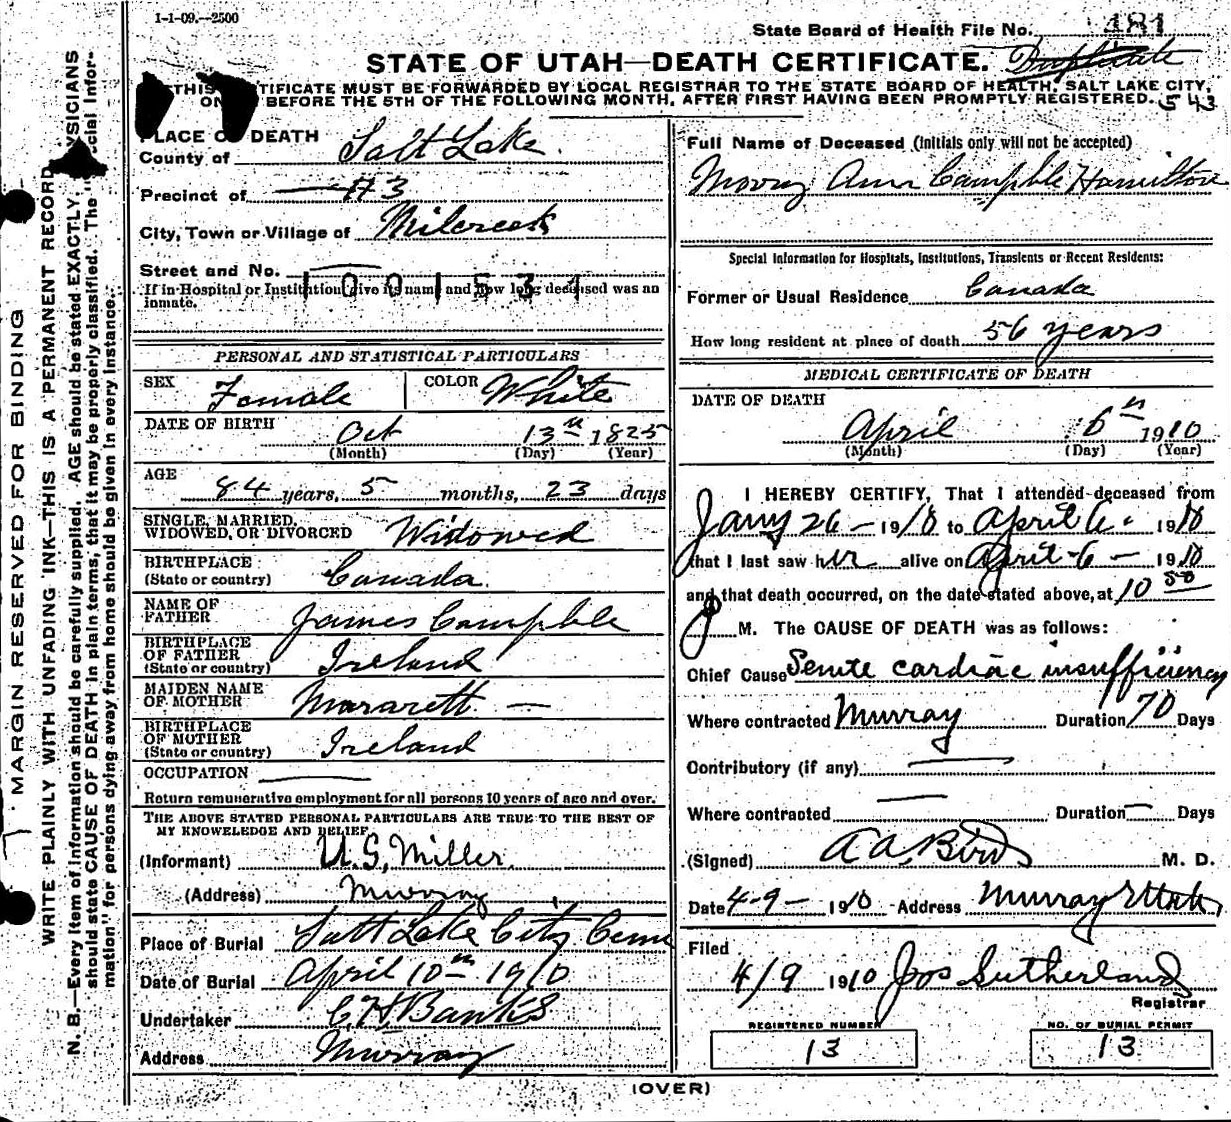 1-1-09.--2500
State Board of Health File No. 481
STATE OF UTAH—DEATH CERTIFICATE. Duplicate
THIS TIFICATE MUST BE FORWARDED BY LOCAL REGISTRAR TO THE STATE BOARD OF HEALTH, SALT LAKE CITY,
ON BEFORE THE 5TH OF THE FOLLOWING MONTH, AFTER FIRST HAVING BEEN PROMPTLY REGISTERED. 543
MARGIN RESERVED FOR BINDING
WRITE PLAINLY WITH UNFADING INK—THIS IS A PERMANENT RECORD
N. B.—Every item of information should be carefully supplied. AGE should be stated EXACTLY. YSICIANS
should state CAUSE OF DEATH in plain terms, that it may be properly classified. The "cial Infor-
mation" for persons dying away from home should be given in every instance.
PLACE OF DEATH
County of Salt Lake.
Precinct of #3
City, Town or Village of Milcreek
Street and No.
1001531
If in Hospital or Institution give its name and how long deceased was an
inmate.
PERSONAL AND STATISTICAL PARTICULARS
SEX Female
COLOR White
DATE OF BIRTH Oct 13th 1825
(Month) (Day) (Year)
AGE 84 years, 5 months, 23 days
SINGLE, MARRIED,
WIDOWED, OR DIVORCED Widowed
BIRTHPLACE
(State or country) Canada.
NAME OF
FATHER James Campble
BIRTHPLACE
OF FATHER
(State or country) Ireland
MAIDEN NAME
OF MOTHER Mararett —
BIRTHPLACE
OF MOTHER
(State or country) Ireland
OCCUPATION
Return remunerative employment for all persons 10 years of age and over.
THE ABOVE STATED PERSONAL PARTICULARS ARE TRUE TO THE BEST OF
MY KNOWLEDGE AND BELIEF
(Informant) U.S. Miller.
(Address) Murray
Place of Burial Salt Lake City Ceme
Date of Burial April 10th 1910
Undertaker C. H. Banks
Address Murray
Full Name of Deceased (Initials only will not be accepted)
Ann Campble Hamilton
Special Information for Hospitals, Institutions, Transients or Recent Residents:
Former or Usual Residence Canada
How long resident at place of death 56 years
MEDICAL CERTIFICATE OF DEATH
DATE OF DEATH
April 6th 1910
(Month) (Day) (Year)
I HEREBY CERTIFY, That I attended deceased from
Jany 26 – 1910 to April 6. 1910
that I last saw her alive on April – 6 – 1910
and that death occurred, on the date stated above, at 10 50
M. The CAUSE OF DEATH was as follows:
Chief Cause Senile cardiac insufficiency
Where contracted Murray Duration 70 Days
Contributory (if any) —
Where contracted — Duration — Days
(Signed) A. A. Bird M. D.
Date 4-9- 1910 Address Murray Utah,
Filed
4/9 1910 Jos Sutherland
Registrar
REGISTERED NUMBER
13
NO. OF BURIAL PERMIT
13
(OVER)